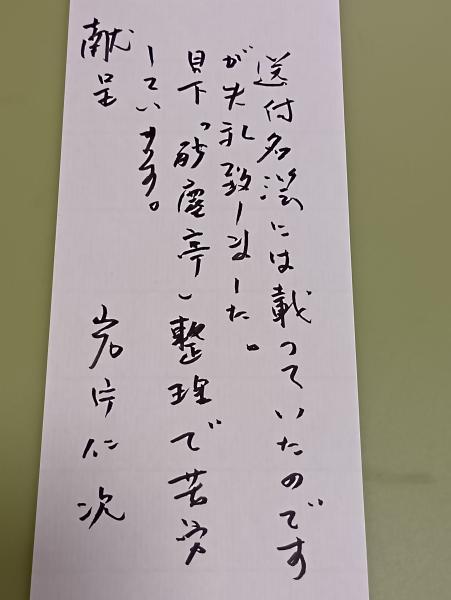 送付名簿には載っていたのです
が失礼致しました。
目下「砂塵亭」整理で苦労
しています。
献呈
岩片仁次